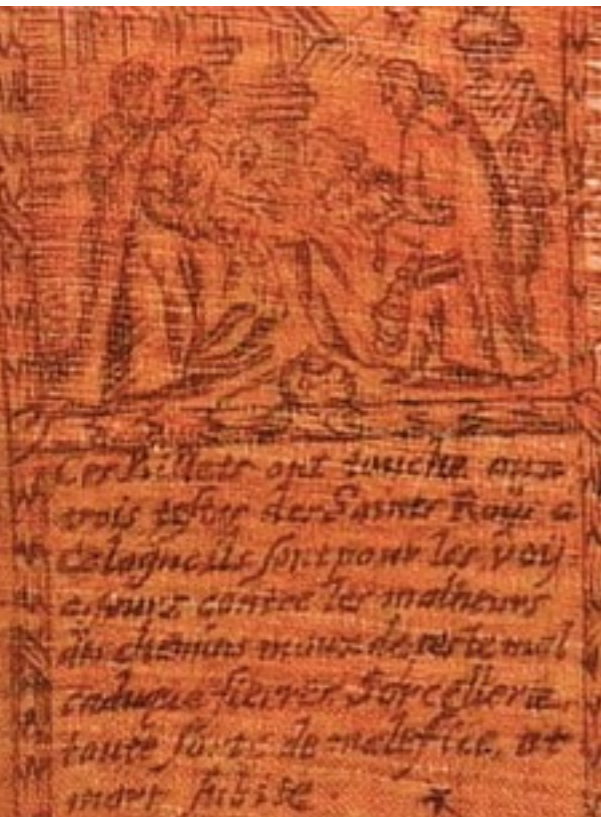 Ces Billets ont touché aux
trois testes des Saints Roys a
Cologne ils sont pour les voÿ
ageurs contre les malheurs
des chemins maux de teste mal
caduque fievres Sorcellerie
toute sorte de malefice, et
mort subite